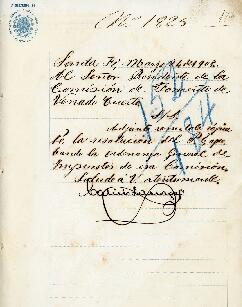 No 1223
Santa Fé, Marzo 24 de 1902.
Al Señor Presidente de la
Comisión de Fomento de
Venado Tuerto
Adjunto remitole copia
de la resolución del P. E. apro
bando la ordenanza General de
Impuestos de esa Comisión
Saluda á V. atentamente